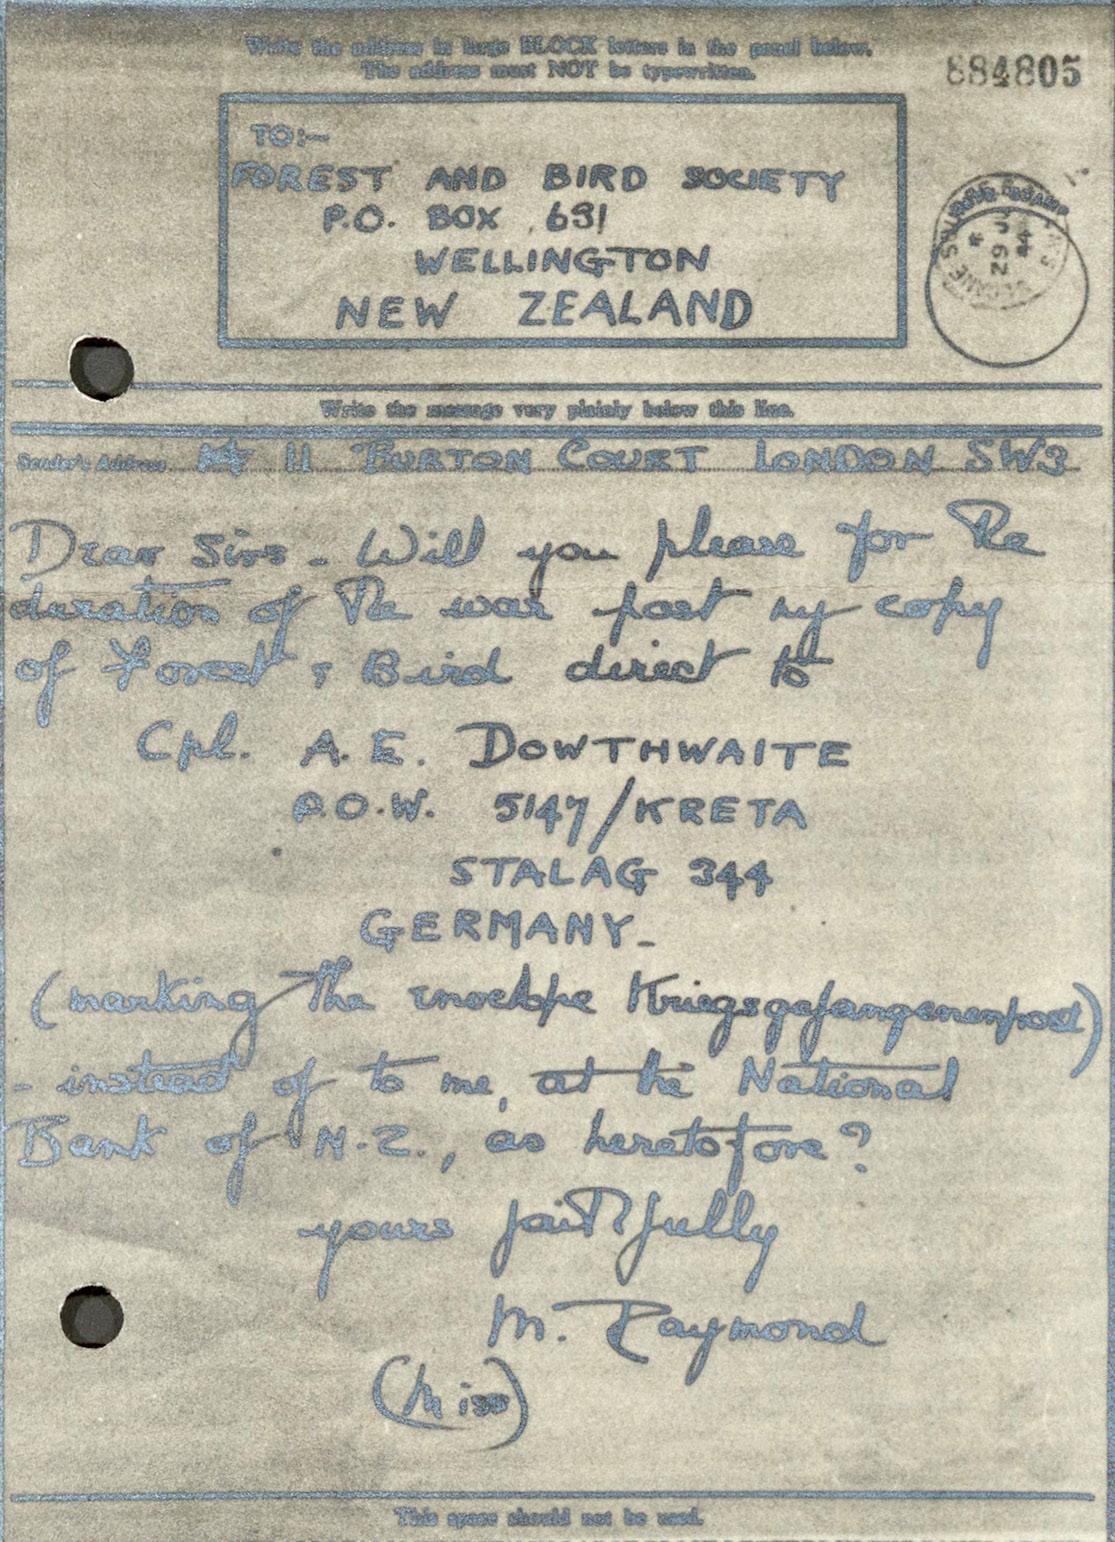 Write the address in large BLOCK letters in the panel below.
The address must NOT be typewritten.
884805
TO:—
FOREST AND BIRD SOCIETY
P.O. BOX 631
WELLINGTON
NEW ZEALAND
29 44
Write the message very plainly below this line.
Sender's Address 11 BURTON COURT LONDON SW3
Dear Sirs - Will you please for the
duration of the war post my copy
of Forest & Bird direct to
Cpl. A. E. DOWTHWAITE
P.O.W. 5147/KRETA
STALAG 344
GERMANY_
(marking the envelope Kriegsgefangenenpost)
- instead of to me, at the National
Bank of N.Z., as heretofore?
yours faithfully
M. Raymond
(Miss)
This space should not be used.